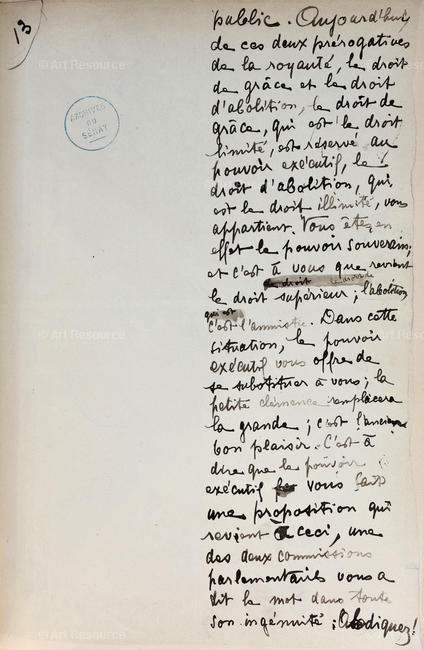 13
public. Aujourd'hui,
de ces deux prérogatives
de la royauté, le droit
de grâce et le droit
d'abolition, le droit de
grâce, qui est le droit
limité, est réservé au
pouvoir exécutif, le
droit d'abolition, qui
est le droit illimité, vous
appartient. Vous êtes en
effet le pouvoir souverain;
et c'est à vous que revient
le droit
le droit supérieur; l'abolition
qui est
c'est l'amnistie. Dans cette
situation, le pouvoir
exécutif vous offre de
se substituer à vous; la
petite clémence remplacera
la grande; c'est l'ancien
bon plaisir. C'est à
dire que le pouvoir
exécutif vous fait
une proposition qui
revient à ceci, une
des deux commissions
parlementaires vous a
dit le mot dans toute
son ingénuité: Abdiquez!
ARCHIVES
DU
SÉNAT
© Art Resource
© Art Resource
© Art Resource
© Art Resource